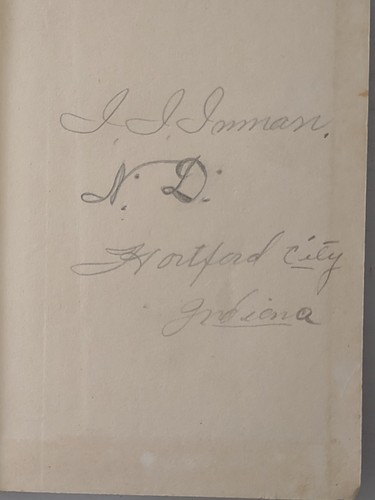 I. I. Inman.
N. D.
Hartford City
Indiana